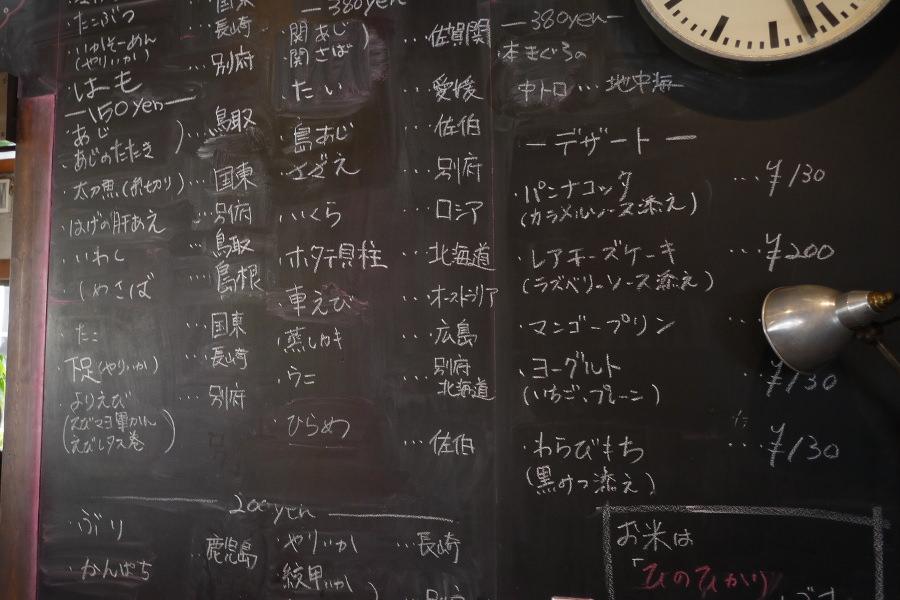 たこぶつ
いかそーめん
(やりいか)
はも
ー150yenー
あじ
あじのたたき
太刀魚(お切り)
はげの肝あえ
いわし
しめさば
たこ
下足(やりいか)
よりえび
(えびマヨ軍かん
えびレタス巻)
国東
長崎
…別府
…鳥取
…国東
…別府
…鳥取
…島根
…国東
…長崎
…別府
ー380yen
・関あじ
・関さば)
・たい
・島あじ
・さざえ
・いくら
・ホタテ貝柱
・車えび
・蒸しカキ
・ウニ
・ひらめ
…佐賀関
…愛媛
…佐伯
…別府
…ロシア
…北海道
…オーストラリア
…広島
…別府
北海道
…佐伯
ー200yenー
・ぶり
・かんぱち
…鹿児島
・やりいか
・紋甲いか
…長崎
ー380yenー
本まぐろの
中トロ…地中海
ーデザートー
・パンナコッタ
(カラメルソース添え)
…¥130
・レアチーズケーキ
(ラズベリーソース添え)
…¥200
・マンゴープリン
・ヨーグルト
(いちご、プレーン)
…¥130
・わらびもち
(黒みつ添え)
…¥130
お米は
「ひのひかり